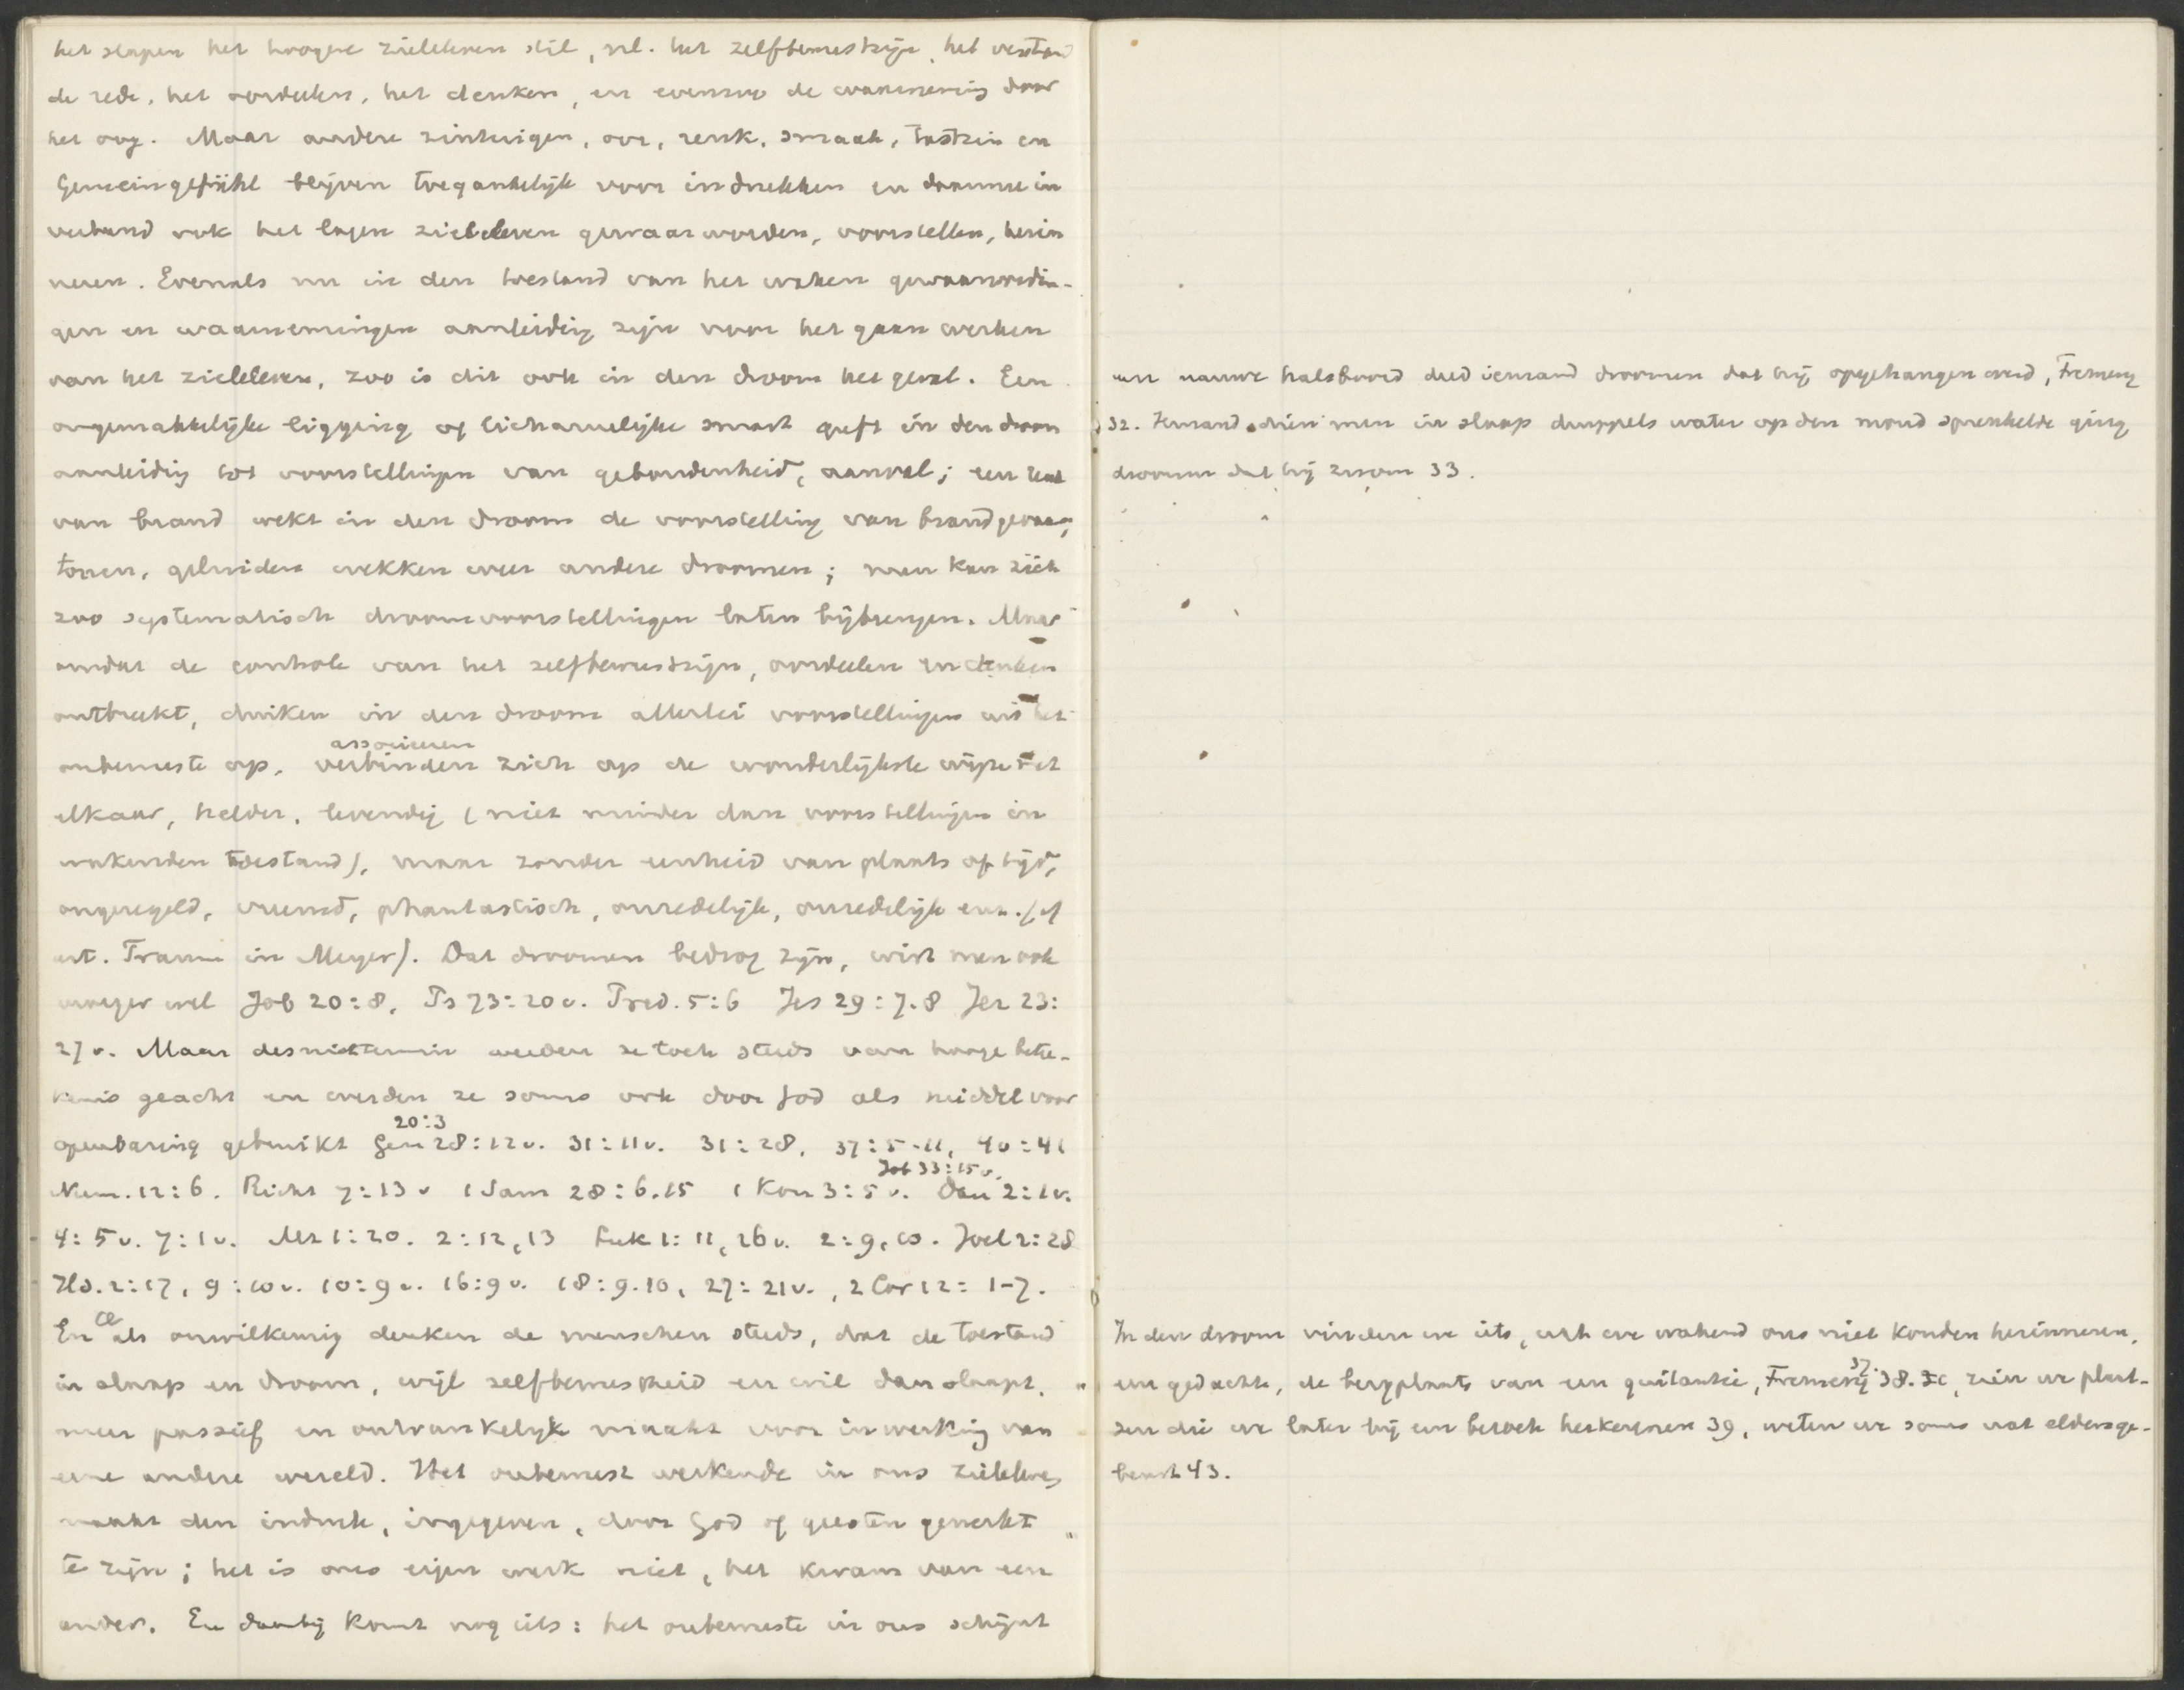 het slapen het hoogere zieleleven stil, nl. het zelfbewustzijn, het verstand
de rede, het oordeelen, het denken, en evenzoo de waarneming door
het oog. Maar andere zintuigen, oor, reuk, smaak, tastzin en
Gemeingefühl blijven toegankelijk voor indrukken en daarmee in
verband ook het lagere zieleleven gewaarworden, voorstellen, herin
neren. Evenals nu in den toestand van het waken gewaarwordin-
gen en waarnemingen aanleiding zijn voor het gaan werken
van het zieleleven, zoo is dit ook in den droom het geval. Een
ongemakkelijke ligging of lichamelijke smart geeft in den droom
aanleiding tot voorstellingen van gebondenheid, aanval; een reuk
van brand wekt in den droom de voorstelling van brandgevaar,
tonen, geluiden wekken weer andere droomen; men kan zich
zoo systematisch droomvoorstellingen laten bijbrengen. Maar
omdat de controle van het zelfbewustzijn, oordeelen en denken
ontbreekt, duiken in den droom allerlei voorstellingen uit het
associeeren
onbewuste op, verbinden zich op de wonderlijkste wijze met
elkaar, helder, levendig (niet minder dan voorstellingen in
wakenden toestand), maar zonder eenheid van plaats of tijd,
ongeregeld, vreemd, phantastisch, onredelijk, onzedelijk enz. (cf
art. Traum in Meyer). Dat droomen bedrog zijn, wist men ook
vroeger wel Job 20:8, Ps 73:20 v. Pred. 5:6 Jes 29:7.8 Jer 23:
27 v. Maar desniettemin werden ze toch steeds van hooge betee-
kenis geacht en werden ze soms ook door God als middel voor
20:3
openbaring gebruikt Gen 28:12 v. 31:11 v. 31:28, 37:5-11, 40:41
Job 33:15 v.
Num. 12:6. Richt 7:13 v 1 Sam 28:6.15 1 Kon 3:5 v. Dan 2:1 v.
4:5 v. 7:1 v. Mt 1:20. 2:12,13 Luk 1:11, 26 v. 2:9,10. Joel 2:28
Hd. 2:17, 9:10 v. 10:9 v. 16:9 v. 18:9.10, 27:21 v., 2 Cor 12:1-7.
En als onwilkeurig denken de menschen steeds, dat de toestand
in slaap en droom, wijl zelfbewustheid en wil dan slaapt,
meer passief en ontvankelijk maakt voor inwerking van
eene andere wereld. Het onbewust werkende in ons zieleleven
maakt den indruk, ingegeven, door God of geesten gewerkt
te zijn; het is ons eigen werk niet, het kwam van een
ander. En daarbij komt nog iets: het onbewuste in ons schijnt
een nauwe halsboord deed iemand droomen dat hij opgehangen werd, Fremery
32. Iemand dien men in slaap druppels water op den mond sprenkelde ging
droomen dat hij zwom 33.
In den droom vinden we iets, wat we wakend ons niet konden herinneren,
37.
een gedachte, de bergplaats van een quitantie, Fremery 38. zien we plaat-
sen die we later bij een bezoek herkennen 39, weten we soms wat elders ge-
beurt 43.